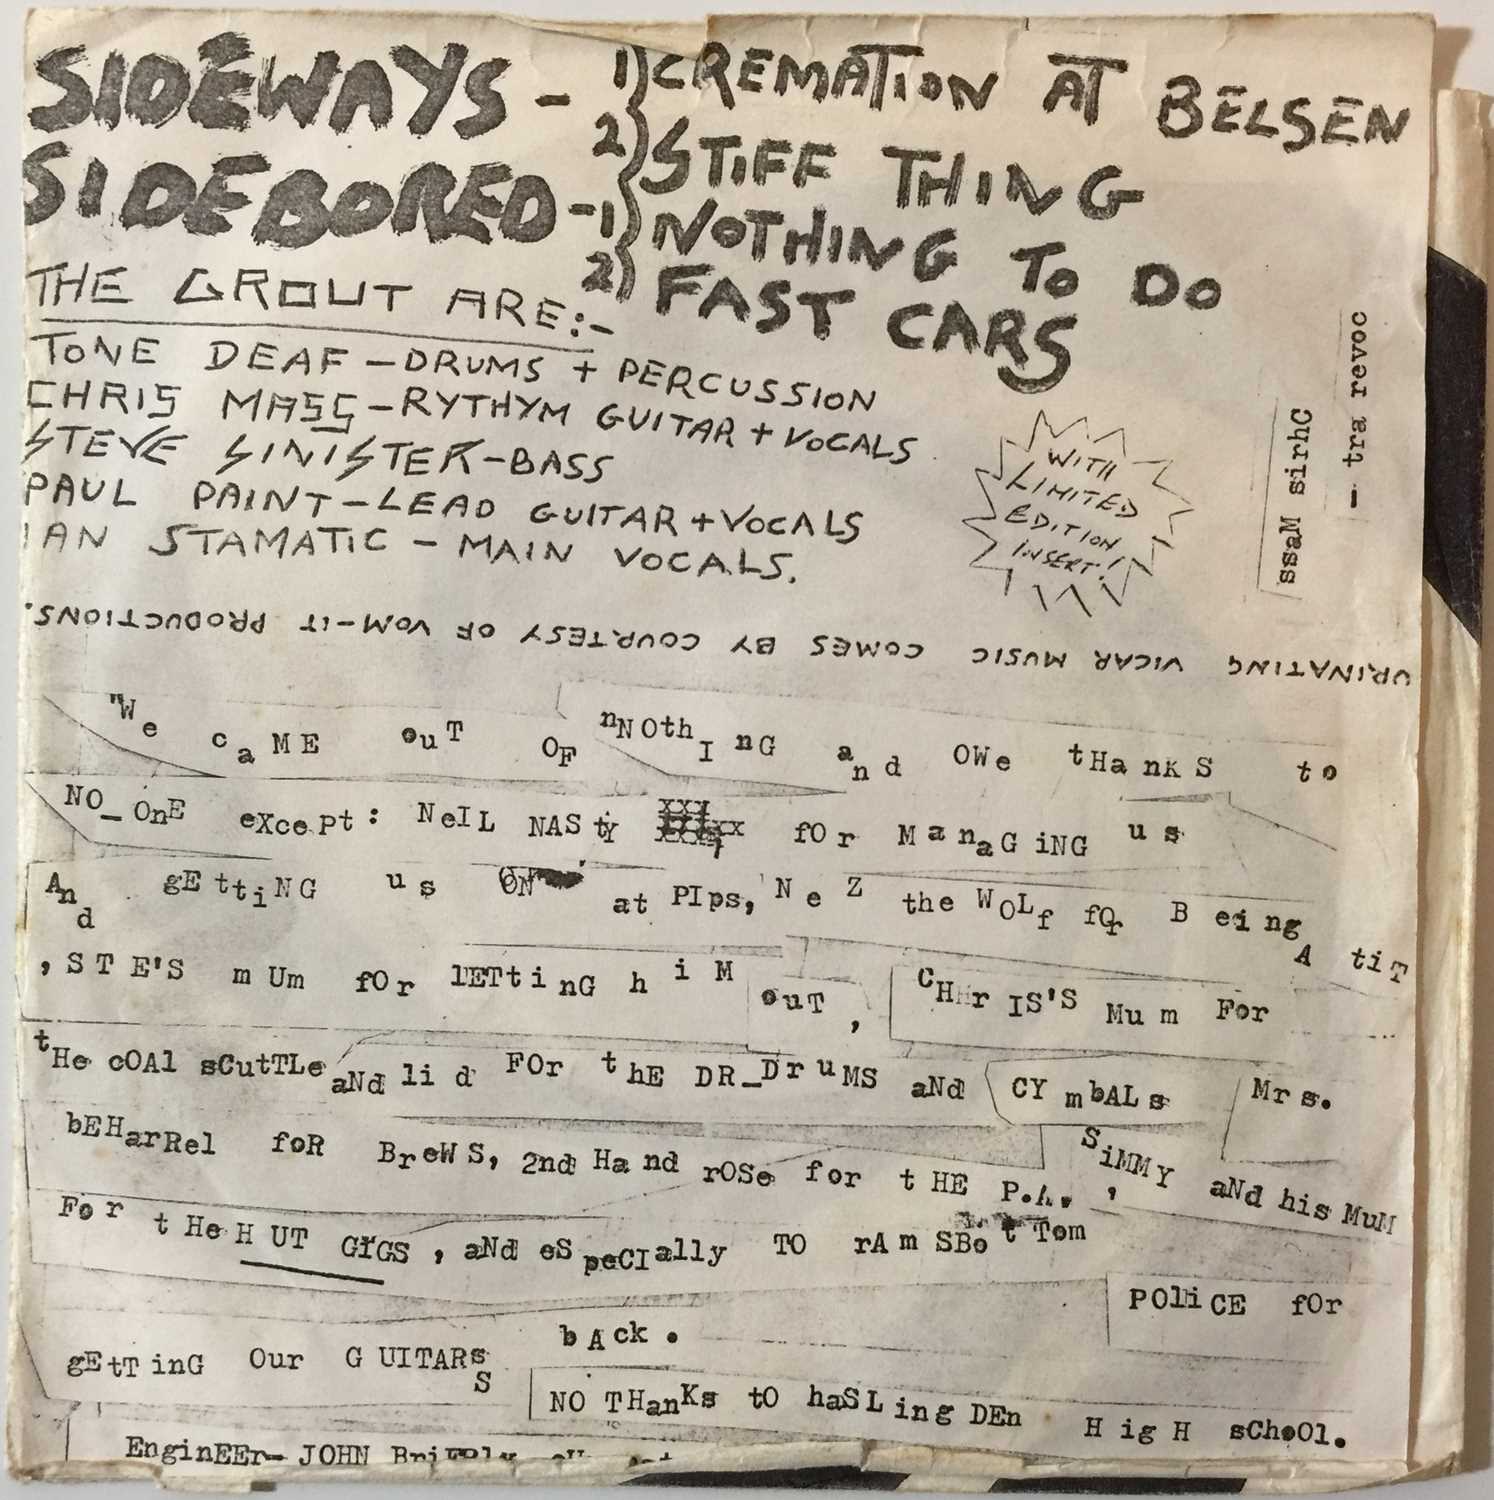 SIDEWAYS - 1) CREMATION AT BELSEN
2) STIFF THING
SIDEBORED - 1) NOTHING TO DO
2) FAST CARS
THE GROUT ARE:-
TONE DEAF - DRUMS + PERCUSSION
CHRIS MASS - RYTHYM GUITAR + VOCALS
STEVE SINISTER - BASS
PAUL PAINT - LEAD GUITAR + VOCALS
IAN STAMATIC - MAIN VOCALS.
WITH
LIMITED
EDITION
INSERT!
ssaM sirhC
- tra revoc
URINATING VICAR MUSIC COMES BY COURTESY OF VOM-IT PRODUCTIONS.
"We caME ouT OF nNOthInG and OWe tHanKS to
NO_OnE eXcePt: NeIL NASty fOr ManaGiNG us
And gEttiNG us ON at PIps, NeZ the WOLf fOr Being A tiT
, STE'S mUm fOr lETtinG hiM ouT, CHrIS'S Mum For
tHe cOAl sCutTLe aNd lid FOr thE DR_DruMS aNd CYmbALs Mrs.
bEHarRel foR BreWS, 2nd Hand rOSe for tHE P.A. , SiMMY aNd his MuM
For tHe HUT GIGS, aNd eSpeCIally TO rAmSBotTom
POliCE fOr
gEtTinG Our GUITARs S bAck.
NO THanKs tO haSLingDEn HigH sChoOl.
EnginEEr- JOHN